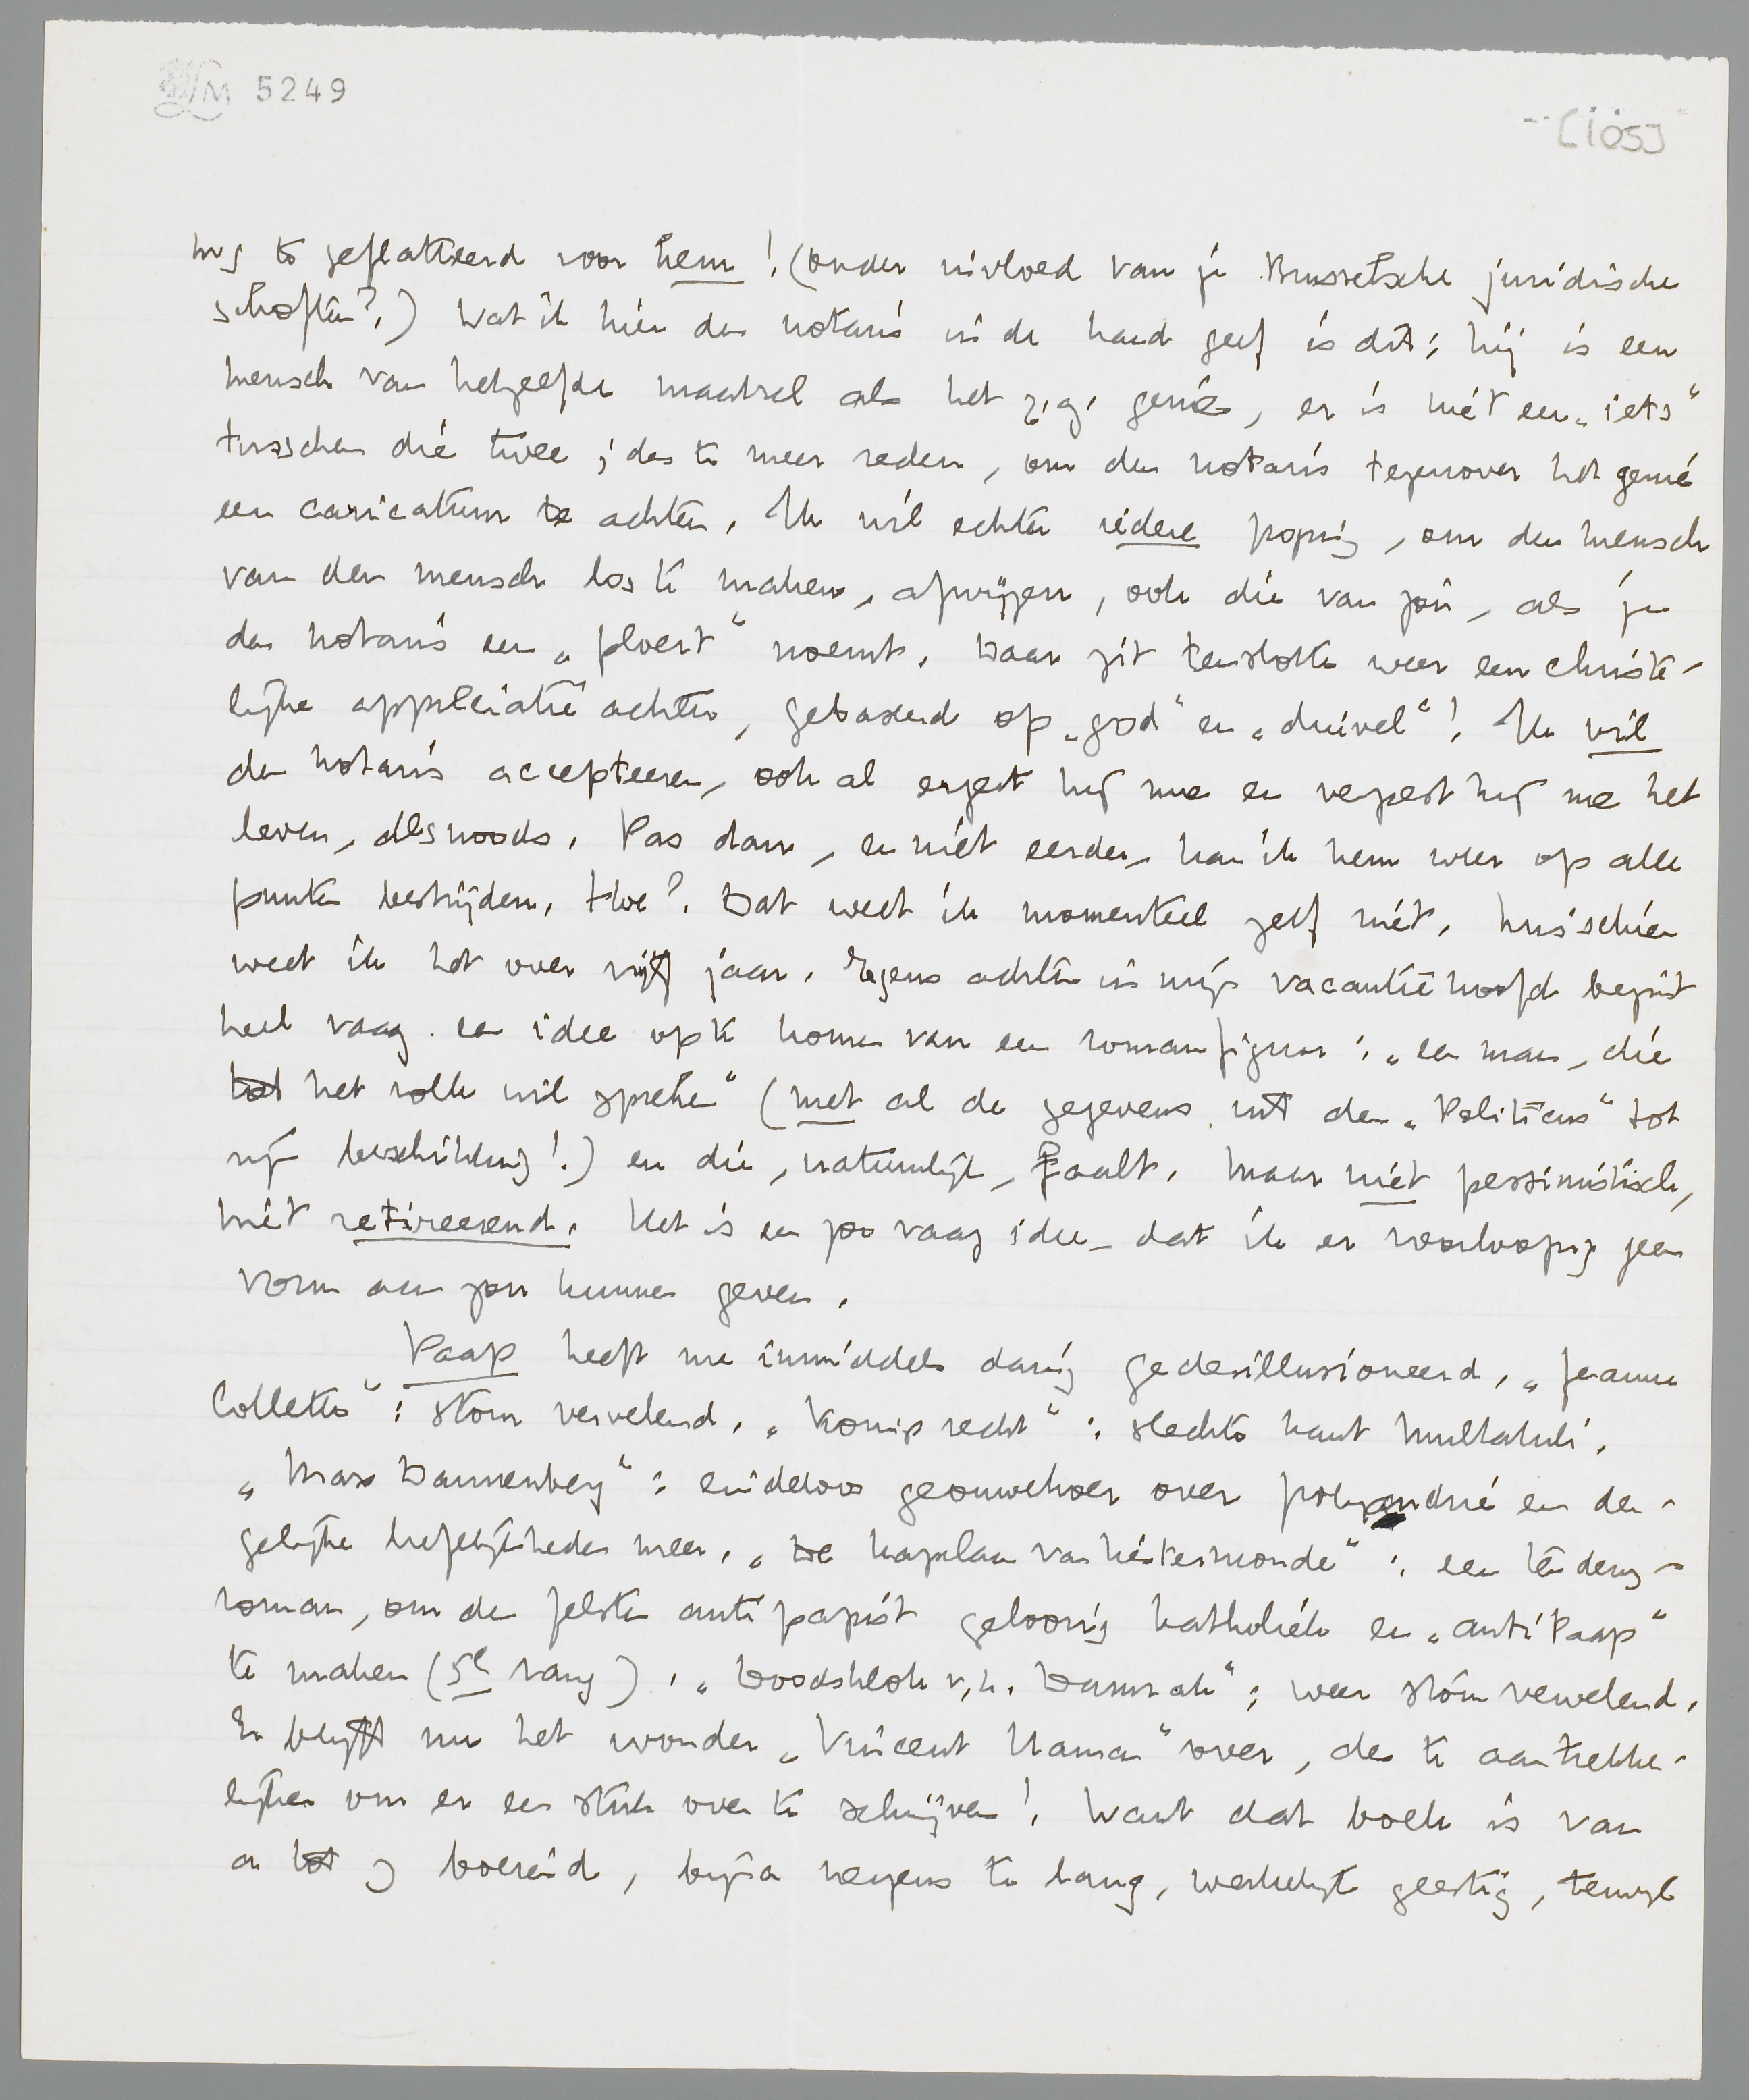 LM 5249
[105]
nog te geflatteerd voor hem! (onder invloed van je Brusselsche juridische
schoften?.) Wat ik hier den notaris in de hand geef is dit: hij is een
mensch van hetzelfde maaksel als het z.g. genie, er is niet een „iets”
tusschen die twee; des te meer reden, om den notaris tegenover het genie
een caricatuur te achten. Ik wil echter iedere poging, om den mensch
van den mensch los te maken, afwijzen, ook die van jou, als je
den notaris een „ploert” noemt. Daar zit tenslotte weer een christe-
lijke appreciatie achter, gebaseerd op „god” en „duivel”! Ik wil
den notaris accepteeren, ook al ergert hij me en verpest hij me het
leven, desnoods. Pas dan, en niet eerder, kan ik hem weer op alle
punten bestrijden. Hoe?. Dat weet ik momenteel zelf niet. Misschien
weet ik het over vijf jaar. Ergens achter in mijn vacantiehoofd begint
heel vaag een idee op te komen van een romanfiguur: „een man, die
tot het volk wil spreken” (met al de gegevens uit den „Politicus” tot
zijn beschikking!.) en die, natuurlijk, faalt. Maar niet pessimistisch,
niet retireerend. Het is een zoo vaag idee, dat ik er voorloopig geen
vorm aan zou kunnen geven.
Paap heeft me inmiddels danig gedesillusioneerd. „Jeanne
Collette”: stom vervelend. „Koningsrecht”: slechte kant Multatuli.
„Max Dannenberg”: eindeloos geouwehoer over polyandrie en der-
gelijke liefelijkheden meer. „De kapelaan van Liestermonde”: een tendenz-
roman, om den felsten antipapist geloovig katholiek en „antiPaap”
te maken (5e rang). „Doodsklok v.h. Damrak”: weer stom vervelend.
Er blijft nu het wonder „Vincent Haman” over, des te aantrekke-
lijker om er een stuk over te schrijven! Want dat boek is van
a tot z boeiend, bijna nergens te lang, werkelijk geestig, terwijl